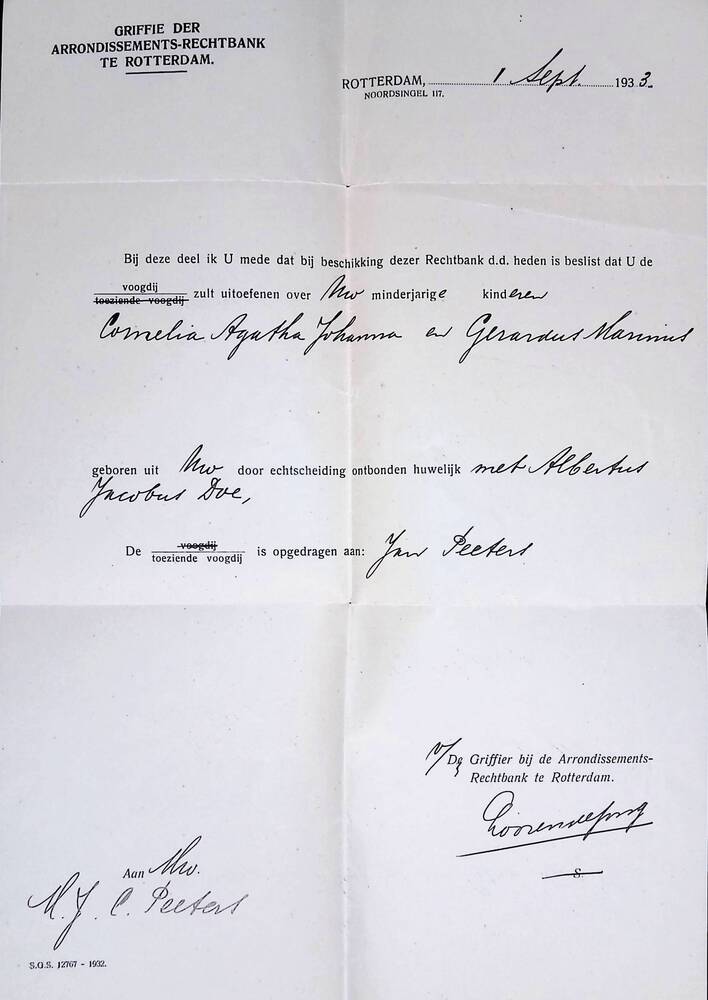 GRIFFIE DER
ARRONDISSEMENTS-RECHTBANK
TE ROTTERDAM.
ROTTERDAM, 1 Sept. 1933.
NOORDSINGEL 117.
Bij deze deel ik U mede dat bij beschikking dezer Rechtbank d.d. heden is beslist dat U de
voogdij
toeziende voogdij zult uitoefenen over Uw minderjarige kinderen
Cornelia Agatha Johanna en Gerardus Marinus
geboren uit Uw door echtscheiding ontbonden huwelijk met Albertus
Jacobus Doe,
De voogdij
toeziende voogdij is opgedragen aan: Jan Peeters
v/De Griffier bij de Arrondissements-
Rechtbank te Rotterdam.
S.
Aan Mw.
M. J. C. Peeters
S.G.S. 12767 - 1932.